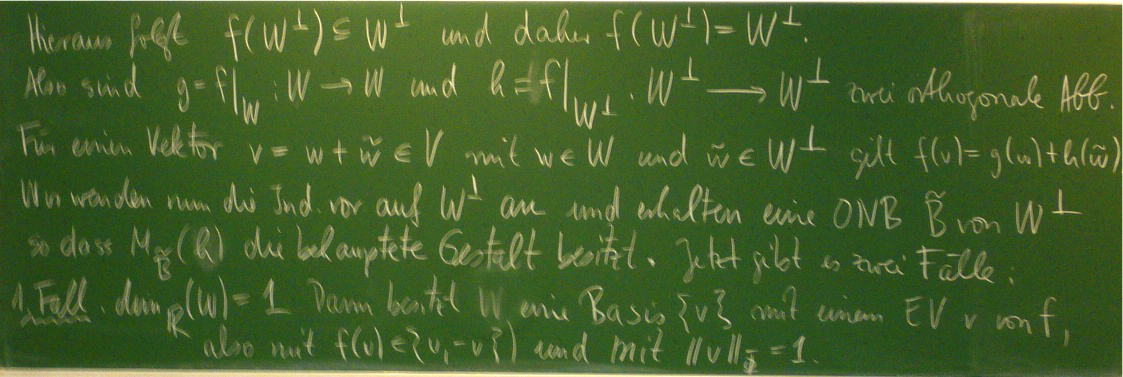 Hieraus folgt f(W^⊥) ⊆ W^⊥ und daher f(W^⊥) = W^⊥.
Also sind g = f|_W : W → W und h = f|_{W^⊥} : W^⊥ → W^⊥ zwei orthogonale Abb.
Für einen Vektor v = w + w̃ ∈ V mit w ∈ W und w̃ ∈ W^⊥ gilt f(v) = g(w) + h(w̃)
Wir wenden nun die Ind.vor auf W^⊥ an und erhalten eine ONB B̃ von W^⊥
so dass M_B̃(h) die behauptete Gestalt besitzt. Jetzt gibt es zwei Fälle:
1. Fall. dim_ℝ(W) = 1 Dann besitzt W eine Basis {v} mit einem EV v von f,
also mit f(v) ∈ {v, -v}) und mit ||v||_Φ = 1.